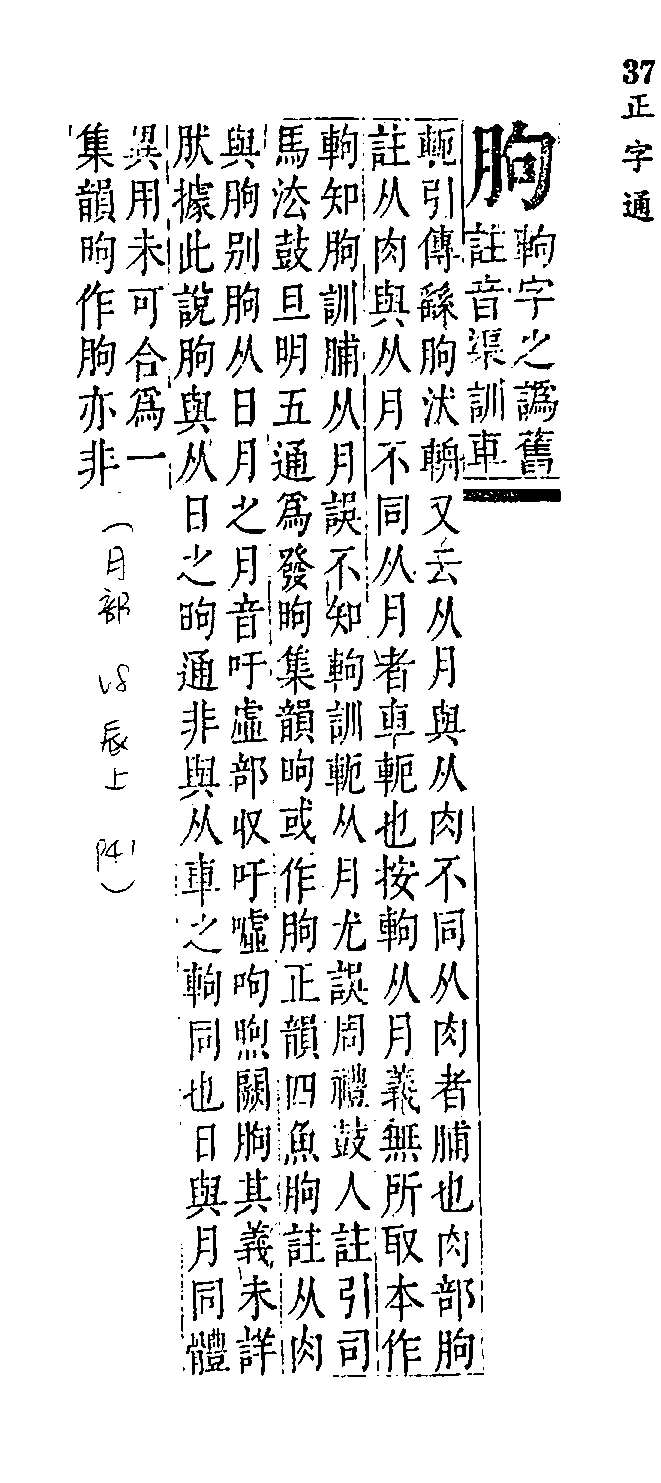 37
正字通
朐
軥字之譌舊
註音渠訓車
軛引傳繇朐汱輈又云从月與从肉不同从肉者脯也肉部朐
註从肉與从月不同从月者車軛也按軥从月義無所取本作
軥知朐訓脯从月誤不知軥訓軛从月尤誤周禮鼓人註引司
馬法鼓旦明五通爲發昫集韻昫或作朐正韻四魚朐註从肉
與朐别朐从日月之月音吁虛部収吁噓呴煦闕朐其義未詳
肰據此說朐與从日之昫通非與从車之軥同也日與月同體
異用未可合爲一
集韻昫作朐亦非
(月部 VS 辰上 P41)